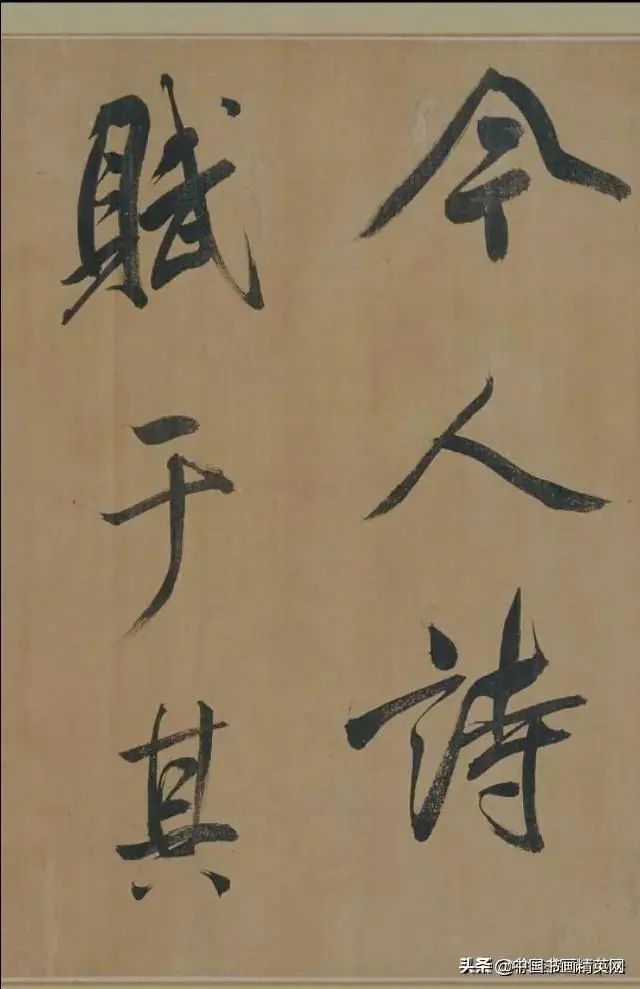 今人詩
賦于其
头条 @中国书画精英网